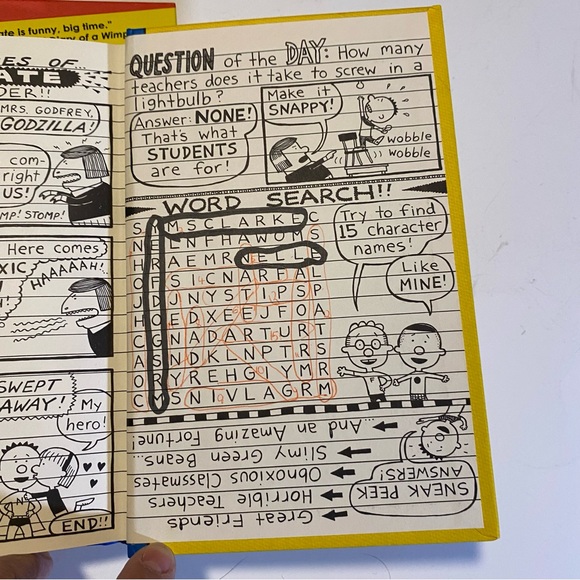 ate is funny, big time."
ary of a Wimp
ES OF
ATE
DER!!
MRS. GODFREY,
GODZILLA!
com-
right
US!
MP! STOMP!
Here comes
XIC
HAAAAH!
SWEPT
AWAY!
My
hero!
END!!
QUESTION of the DAY: How many
teachers does it take to screw in a
lightbulb?
Answer: NONE!
That's what
STUDENTS
are for!
Make it
SNAPPY!
wobble
wobble
WORD SEARCH!!
M S C L A R K E C
N F H A W O M S
A E M R N E
S I C N A R F A L
U N Y S T I P S P
H O E D X E E J F O A
C G N A D A R T U R
A S N D K L N P T R S
O R Y R E H G Y M R
C M S N I V L A G R M
Try to find
15 character
names!
Like
MINE!
SNEAK PEEK
ANSWERS!
Great Friends
Horrible Teachers
Obnoxious Classmates
Slimy Green Beans...
...And an Amazing Fortune!